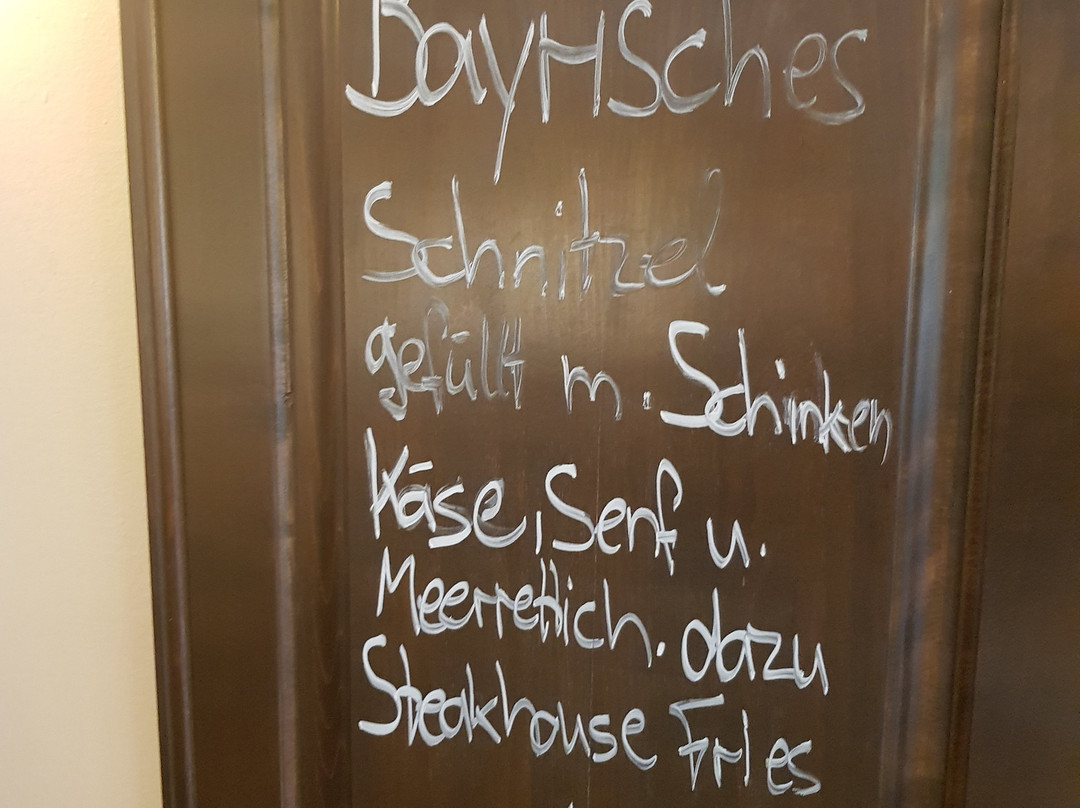 Bayrisches
Schnitzel
gefüllt m. Schinken
Käse, Senf u.
Meerrettich. dazu
Steakhouse Fries